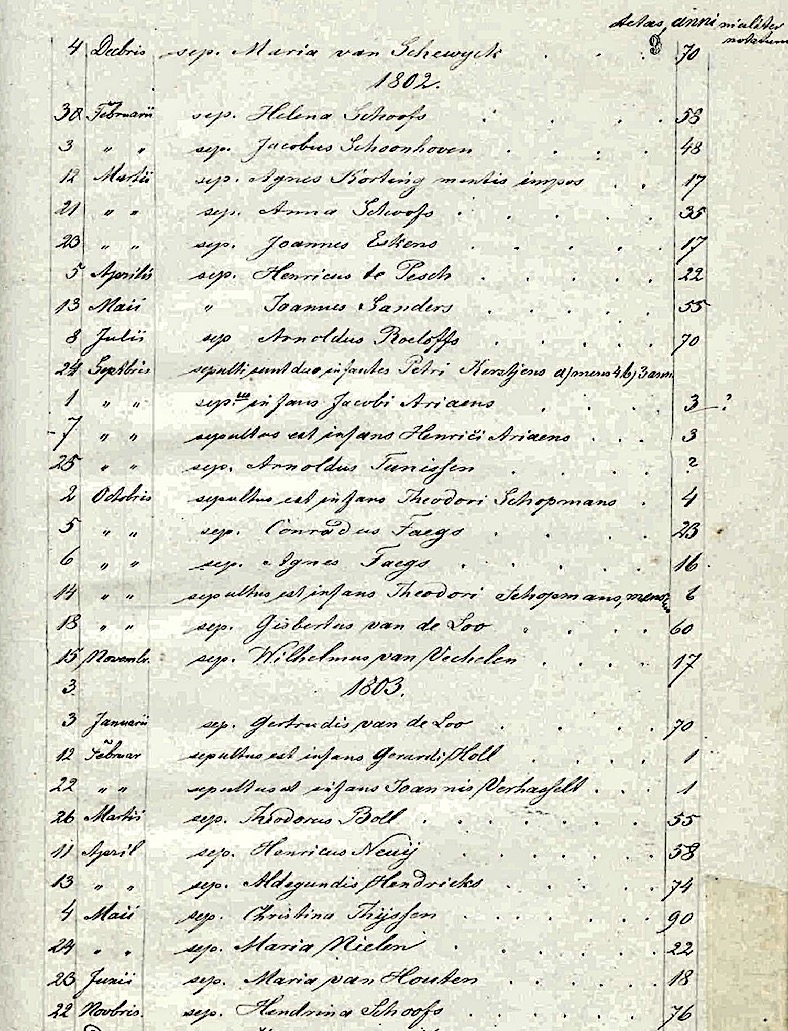 Aetas, anni
notatum
4 Decbris sep. Maria van Schewyck . . . 70
1802.
30 Februarii sep. Helena Schoofs . . . 58
3 " " sep. Jacobus Schoonhoven . . . . 48
12 Martii sep. Agnes Korting mentis impos . . 17
21 " " sep. Anna Schoofs . . . . 35
23 " " sep. Joannes Eskens . . . . 17
5 Aprilis sep. Henricus te Pesch . . . . 22
13 Maii " Joannes Sanders . . . . 55
8 Julii sep Arnoldus Roeloffs . . . . 70
24 Septbris sepulti sunt duo infantes Petri Kerstjens a) mens 4 b) 3 ann.
1 " " sep. infans Jacobi Ariaens . . . 3 - ?
-7 " " sepultus est infans Henrici Ariaens . . . 3
25 " " sep. Arnoldus Tunissen . . . . ?
2 Octobris sepultus est infans Theodori Schopmans . 4
5 " " sep. Conradus Faegs . . . . 23
6 " " sep. Agnes Faegs . . . . 16
14 " " sepultus est infans Theodori Schopmans, mens 6
18 " " sep. Gisbertus van de Loo . . . . 60
15 Novembr. sep. Wilhelmus van Vechelen . . . . 17
3. 1803.
3 Januarii sep. Gertrudis van de Loo . . . . 70
12 Februar sepultus est infans Gerardi Holl . . . . 1
22 " " sepultus est infans Joannis Verhasselt . . . 1
26 Martii sep. Theodorus Boll . . . . 55
11 April sep. Henricus Neuij . . . . 58
13 " " sep. Aldegundis Hendricks . . . . 74
4 Maii sep. Christina Thijssen . . . . 90
24 " " sep. Maria Nielen . . . . 22
23 Junii sep. Maria van Houten . . . . 18
22 Novbris. sep. Hendrina Schoofs . . . . 76